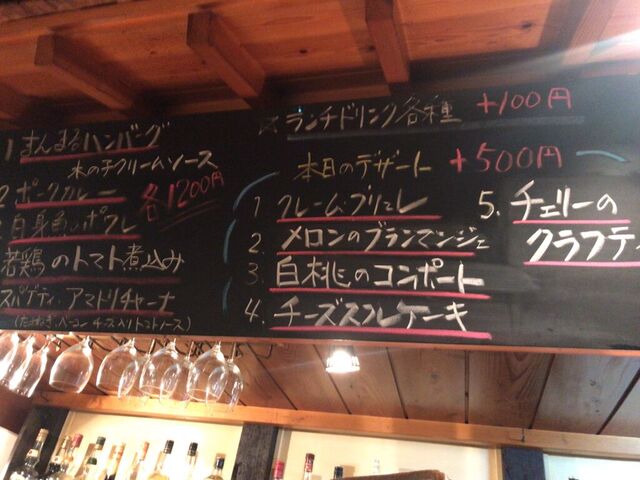 1 まんまるハンバーグ
木の子クリームソース
2 ポークカレー
各1200円
白身魚のポワレ
若鶏のトマト煮込み
スパゲティ・アマトリチャーナ
(たまねぎ・ベーコン・チーズ入りトマトソース)
※ランチドリンク各種 +100円
本日のデザート +500円
1 クレーム・ブリュレ
2. メロンのブランマンジェ
3 白桃のコンポート
4. チーズスフレケーキ
5. チェリーの
クラフティ